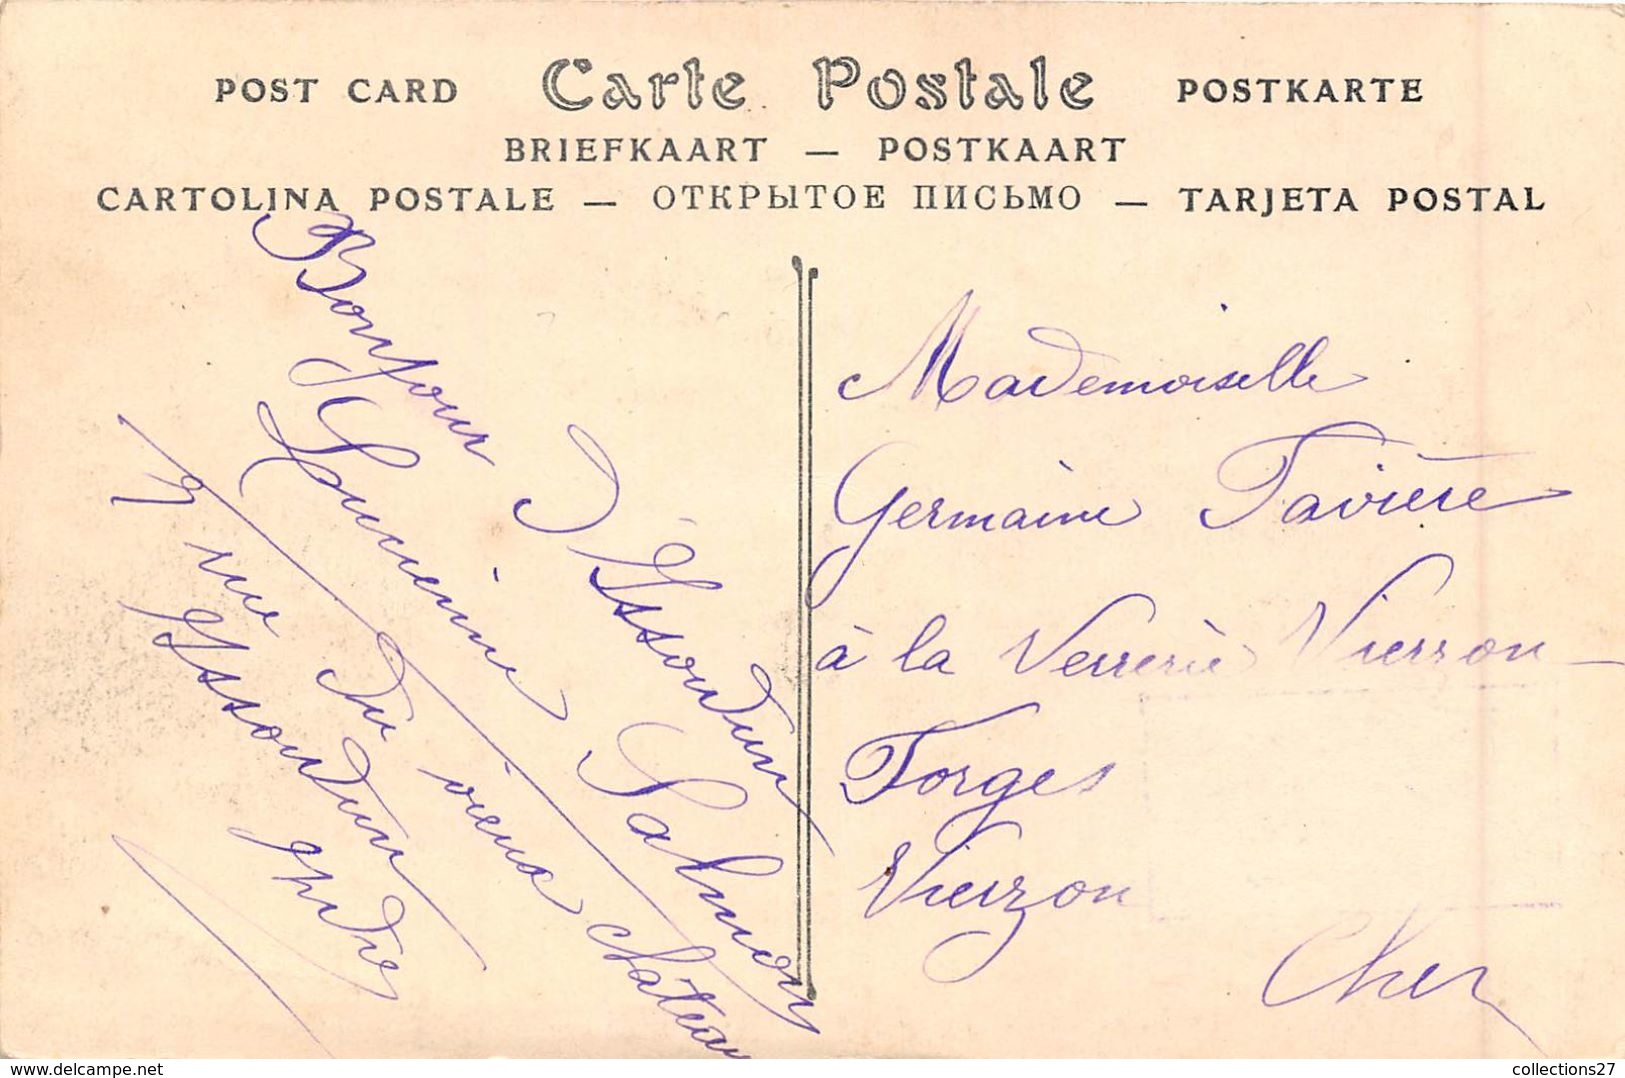 POST CARD Carte Postale POSTKARTE
BRIEFKAART — POSTKAART
CARTOLINA POSTALE — ОТКРЫТОЕ ПИСЬМО — TARJETA POSTAL
Bonjour d'Issoudun
Lucienne Salmon
9 rue du vieux château
Issoudun
Indre
Mademoiselle
Germaine Tavière
à la Verrerie Vierzon-
Forges
Vierzon
Cher
delcampe.net
collections27